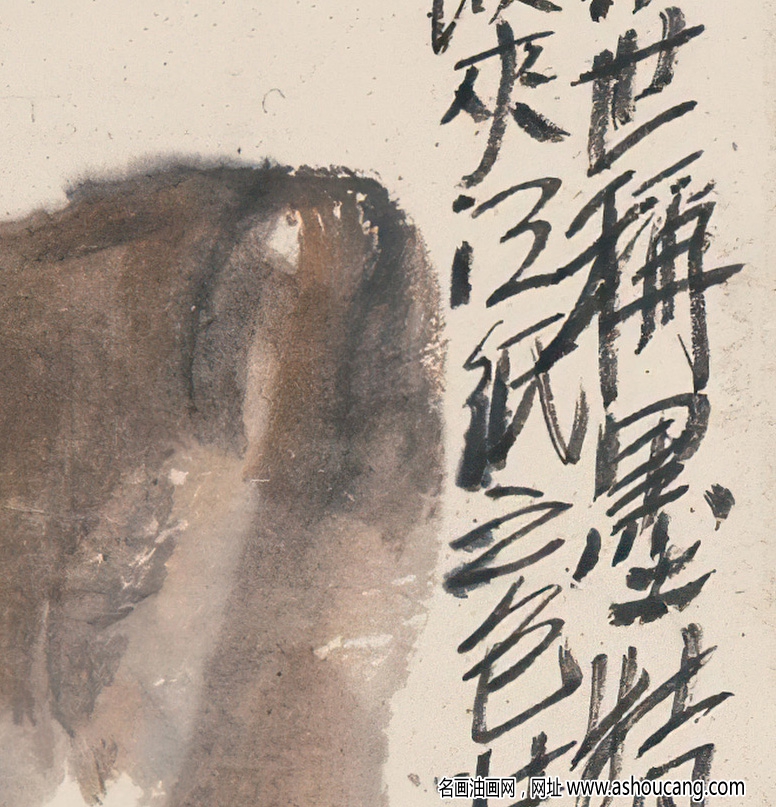 世稱墨特
夾江紙之色
名画油画网，网址 www.ashoucang.com